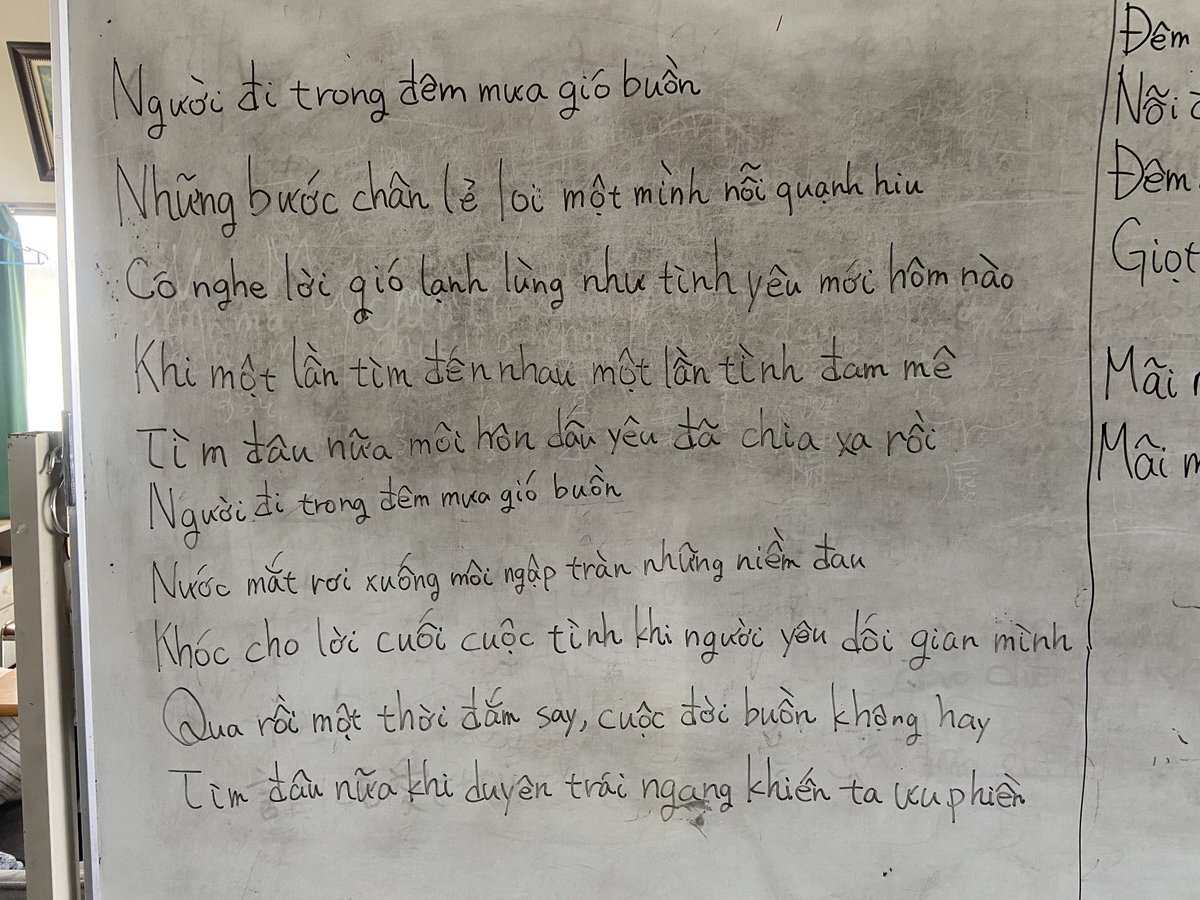 Người đi trong đêm mưa gió buồn
Những bước chân lẻ loi một mình nỗi quạnh hiu
Có nghe lời gió lạnh lùng như tình yêu mới hôm nào
Khi một lần tìm đến nhau một lần tình đam mê
Tìm đâu nữa môi hôn dấu yêu đã chia xa rồi
Người đi trong đêm mưa gió buồn
Nước mắt rơi xuống môi ngập tràn những niềm đau
Khóc cho lời cuối cuộc tình khi người yêu dối gian mình
Qua rồi một thời đắm say, cuộc đời buồn không hay
Tìm đâu nữa khi duyên trái ngang khiến ta ưu phiền
Đêm
Nỗi
Đêm
Giọt
Mãi
Mãi m